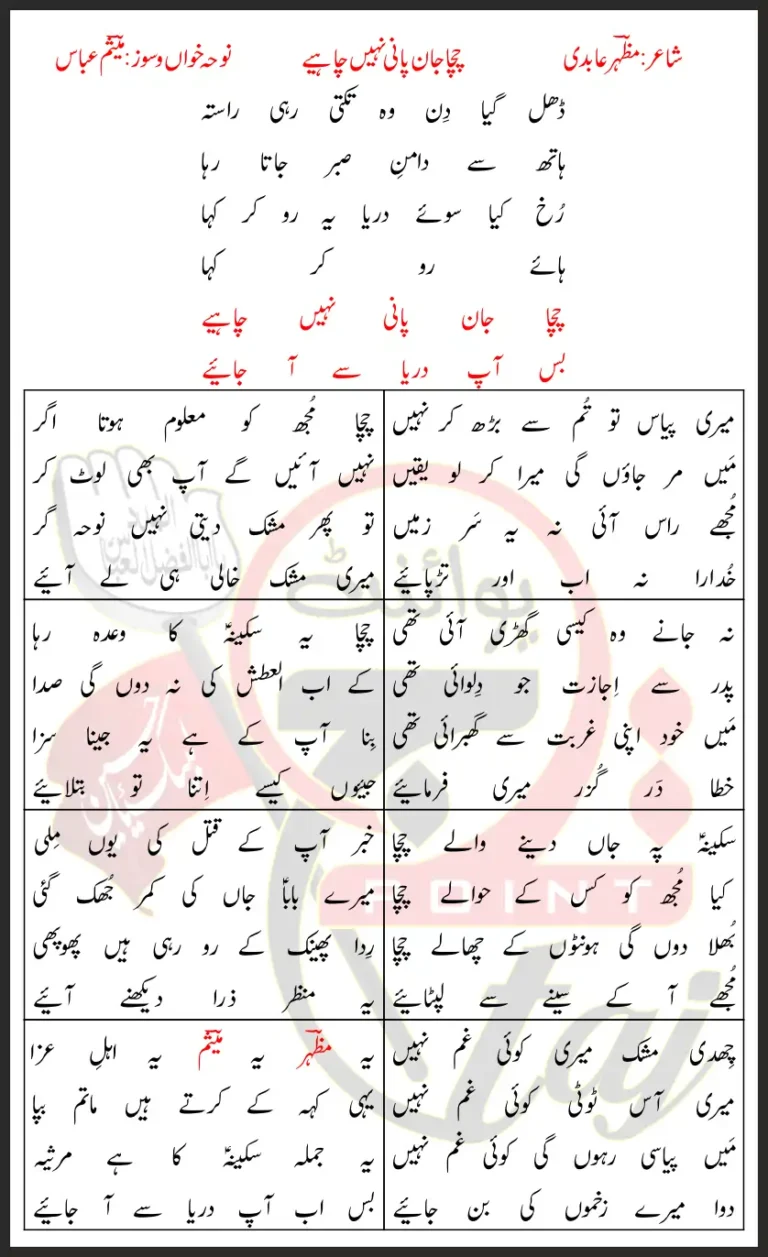 شاعر: مظہرؔ عابدی چچا جان پانی نہیں چاہیے نوحہ خواں و سوز: میثمؔ عباس
ڈھل گیا دِن وہ تکتی رہی راستہ
ہاتھ سے دامنِ صبر جاتا رہا
رُخ کیا سوئے دریا یہ رو کر کہا
ہائے رو کر کہا
چچا جان پانی نہیں چاہیے
بس آپ دریا سے آ جائیے
میری پیاس تو تُم سے بڑھ کر نہیں
مَیں مر جاؤں گی میرا کر لو یقیں
مُجھے راس آئی نہ یہ سَر زمیں
خُدارا نہ اب اور تڑپائیے
چچا مُجھ کو معلوم ہوتا اگر
نہیں آئیں گے آپ بھی لوٹ کر
تو پھر مشک دیتی نہیں نوحہ گر
میری مشک خالی ہی لے آئیے
نہ جانے وہ کیسی گھڑی آئی تھی
پدر سے اِجازت جو دِلوائی تھی
مَیں خود اپنی غربت سے گھبرائی تھی
خطا دَر گُزر میری فرمائیے
چچا یہ سکینہؑ کا وعدہ رہا
کے اب العطش کی نہ دوں گی صدا
بِنا آپ کے ہے یہ جینا سزا
جیئوں کیسے اِتنا تو بتلائیے
سکینہؑ پہ جاں دینے والے چچا
کیا مُجھ کو کس کے حوالے چچا
بُھلا دوں گی ہونٹوں کے چھالے چچا
مُجھے آ کے سینے سے لپٹائیے
خبر آپ کے قتل کی یوں مِلی
میرے باباؑ جاں کی کمر جُھک گئی
رِدا پھینک کے رو رہی ہیں پھوپھی
یہ منظر ذرا دیکھنے آئیے
چِھدی مشک میری کوئی غم نہیں
میری آس ٹوٹی کوئی غم نہیں
مَیں پیاسی رہوں گی کوئی غم نہیں
دوا میرے زخموں کی بن جائیے
یہ مظہرؔ یہ میثمؔ یہ اہلِ عزا
یہی کہہ کے کرتے ہیں ماتم بپا
یہ جملہ سکینہؑ کا ہے مرثیہ
بس اب آپ دریا سے آ جائیے
پوائنٹ
POINT
taj